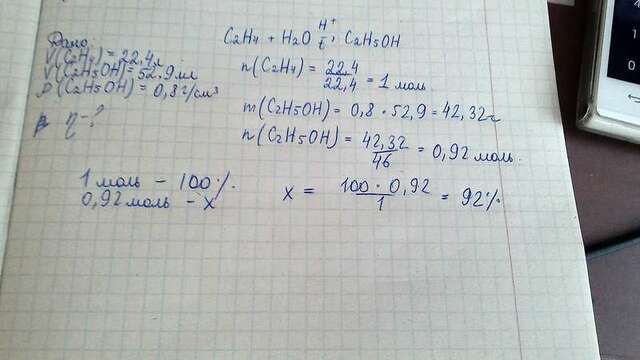 Дано:
V(C2H4) = 22,4л
V(C2H5OH) = 52,9 мл
ρ(C2H5OH) = 0,8 г/см³
η - ?
C2H4 + H2O H⁺, t → C2H5OH
n(C2H4) = 22,4 / 22,4 = 1 моль
m(C2H5OH) = 0,8 · 52,9 = 42,32г
n(C2H5OH) = 42,32 / 46 = 0,92 моль.
1 моль - 100%.
0,92 моль - x
x = 100 · 0,92 / 1 = 92%